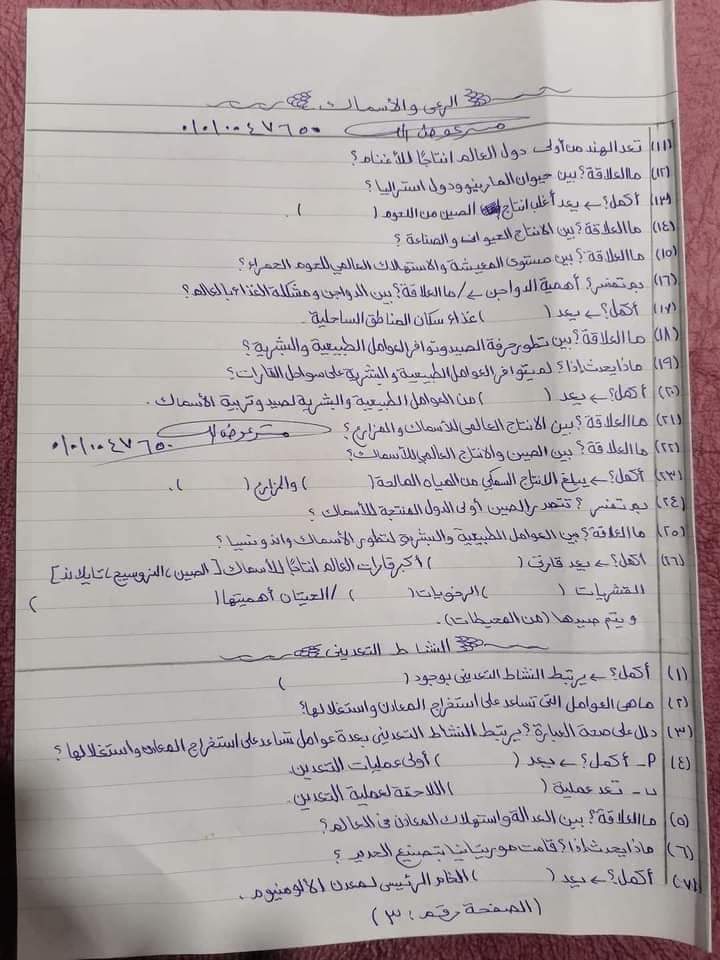 الرعى والأسماك
٠١٠١٠٠٤٧٦٥٠
(١١) تعد الهند من أولى دول العالم انتاجًا للأغنام؟
(١٢) ما العلاقة؟ بين حيوان المارينو ودول استراليا؟
(١٣) أكمل؟ ← يعد أغلب انتاج الصين من اللحوم ( ).
(١٤) ما العلاقة؟ بين الانتاج الحيوانى والصناعة؟
(١٥) ما العلاقة؟ بين مستوى المعيشة والاستهلاك العالمى للحوم الحمراء؟
(١٦) بم تفسر؟ أهمية الدواجن ←/ ما العلاقة؟ بين الدواجن ومشكلة الغذاء بالعالم؟
(١٧) أكمل؟ ← يعد ( ) غذاء سكان المناطق الساحلية.
(١٨) ما العلاقة؟ بين تطور حرفة الصيد وتوافر العوامل الطبيعية والبشرية؟
(١٩) ماذا يحدث إذا؟ لم يتوافر العوامل الطبيعية والبشرية على سواحل القارات؟
(٢٠) أكمل؟ ← يعد ( ) من العوامل الطبيعية والبشرية لصيد وتربية الأسماك.
(٢١) ما العلاقة؟ بين الانتاج العالمى للأسماك والمزارع؟
٠١٠١٠٠٤٧٦٥٠
(٢٢) ما العلاقة؟ بين الصين والانتاج العالمى للأسماك؟
(٢٣) أكمل؟ ← يبلغ الانتاج السمكى من المياه المالحة ( ) والمزارع ( ).
(٢٤) بم تفسر؟ تتصدر الصين أولى الدول المنتجة للأسماك؟
(٢٥) ما العلاقة؟ بين العوامل الطبيعية والبشرية لتطور الأسماك واندونسيا؟
(٢٦) أكمل؟ ← يعد قارتى ( ) أكبر قارات العالم انتاجًا للأسماك [الصين، النرويج، تايلاند]
القشريات ( ) الرخويات ( ) / الحيتان أهميتها ( )
ويتم صيدها (من المحيطات).
النشاط التعدينى
(١) أكمل؟ ← يرتبط النشاط التعدينى بوجود ( )
(٢) ما هى العوامل التى تساعد على استخراج المعادن واستغلالها؟
(٣) دلل على صحة العبارة؟ يرتبط النشاط التعدينى بعدة عوامل تساعد على استخراج المعادن واستغلالها؟
(٤) أ- أكمل؟ ← يعد ( ) أولى عمليات التعدين
ب- تعد عملية ( ) اللاحقة لعملية التعدين.
(٥) ما العلاقة؟ بين العدالة واستهلاك المعادن فى العالم؟
(٦) ماذا يحدث إذا؟ قامت موريتانيا بتصنيع الحديد؟
(٧) أكمل؟ ← يعد ( ) الخام الرئيسى لمعدن الألومنيوم.
(الصفحة رقم: ٣)